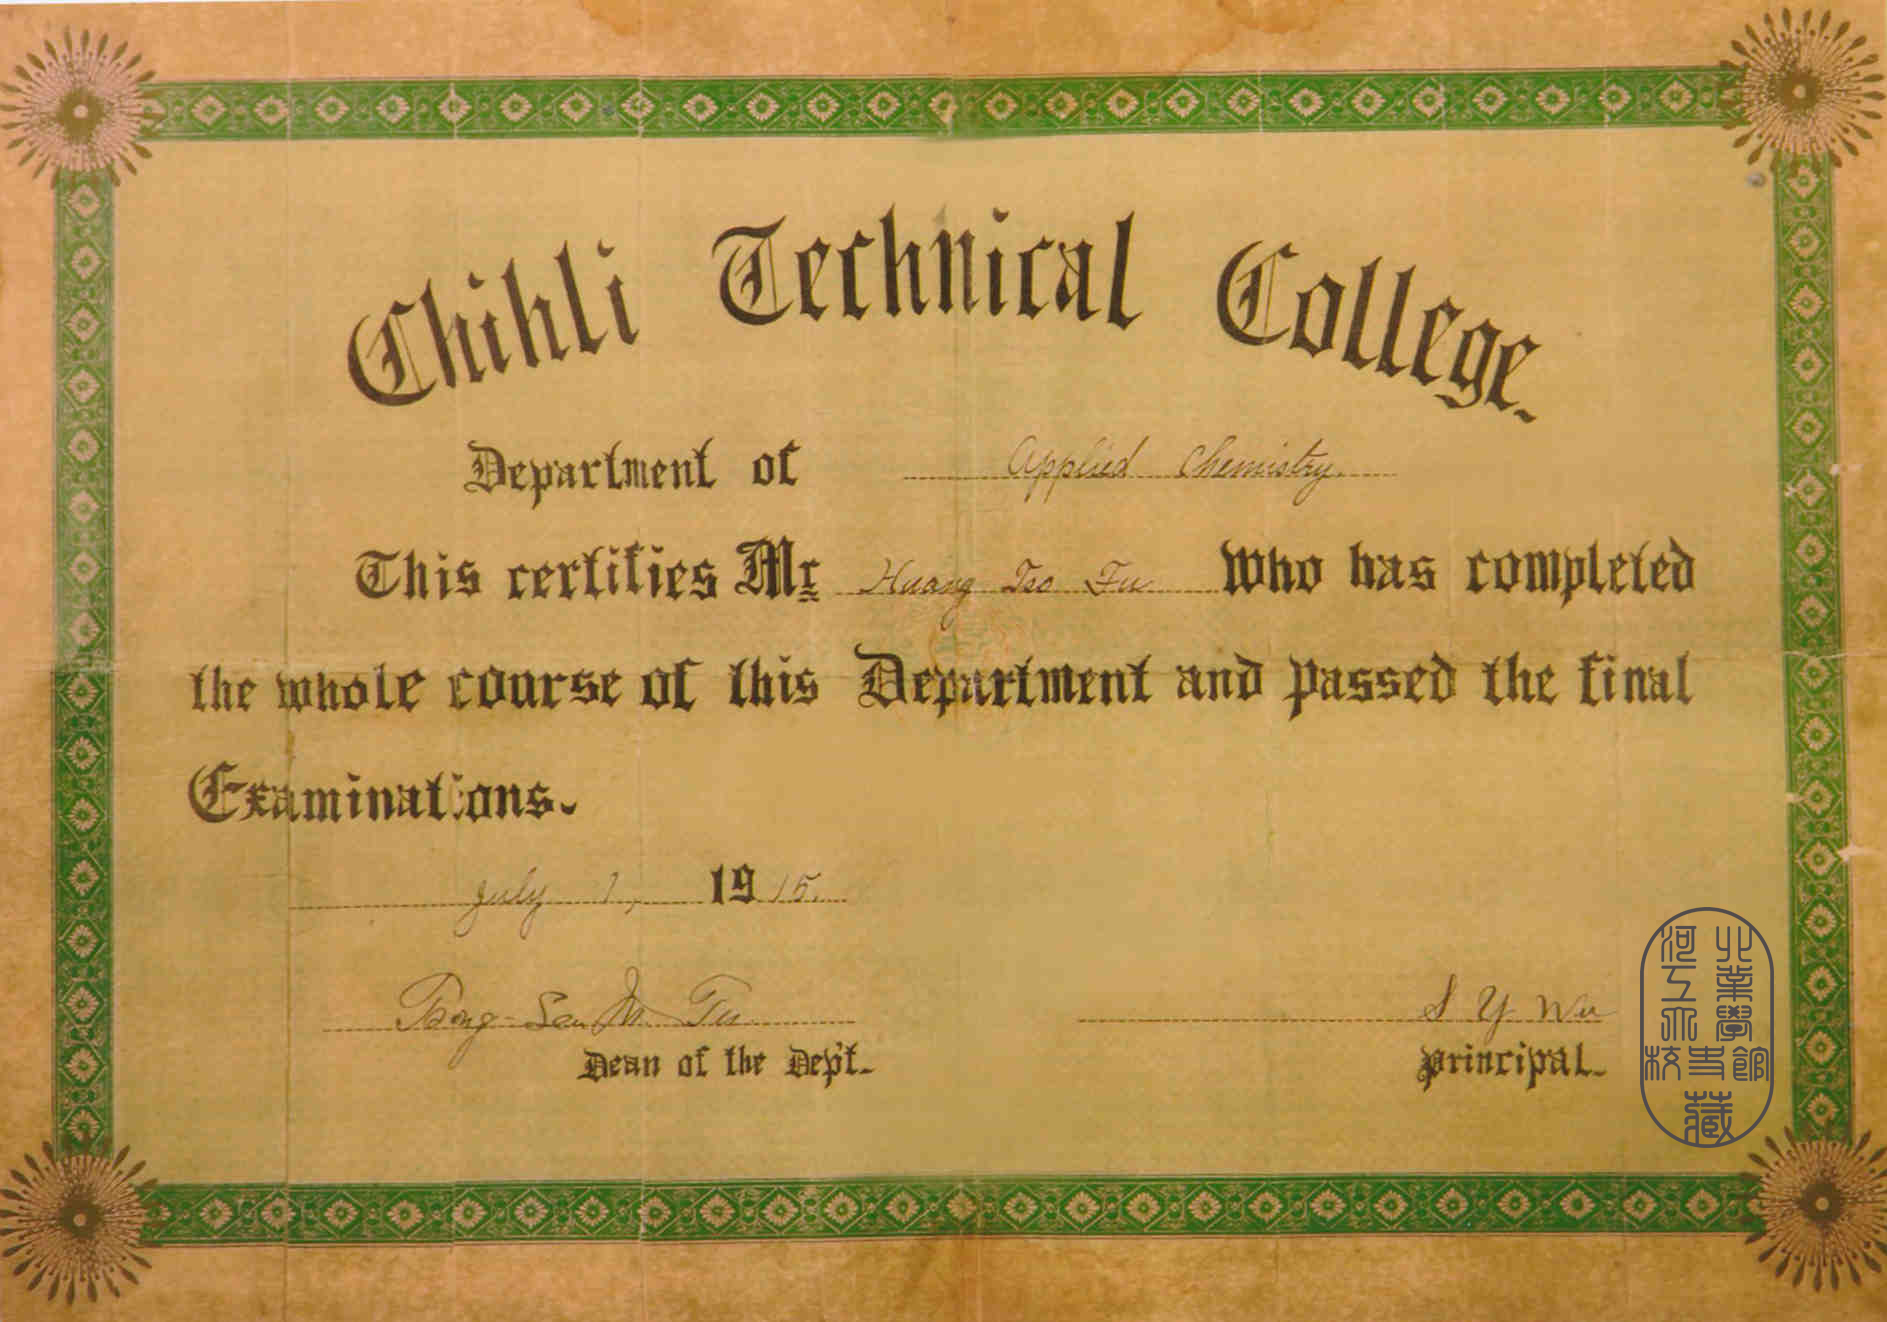 Chihli Technical College.
Department of Applied Chemistry.
This certifies Mr Huang Tso Fu who has completed
the whole course of this Department and passed the final
Examinations.
July 1, 1915.
Tsong-San M. Tu S Y Wu
Dean of the Dep't. Principal.
河北
工業
大學
校史館
藏